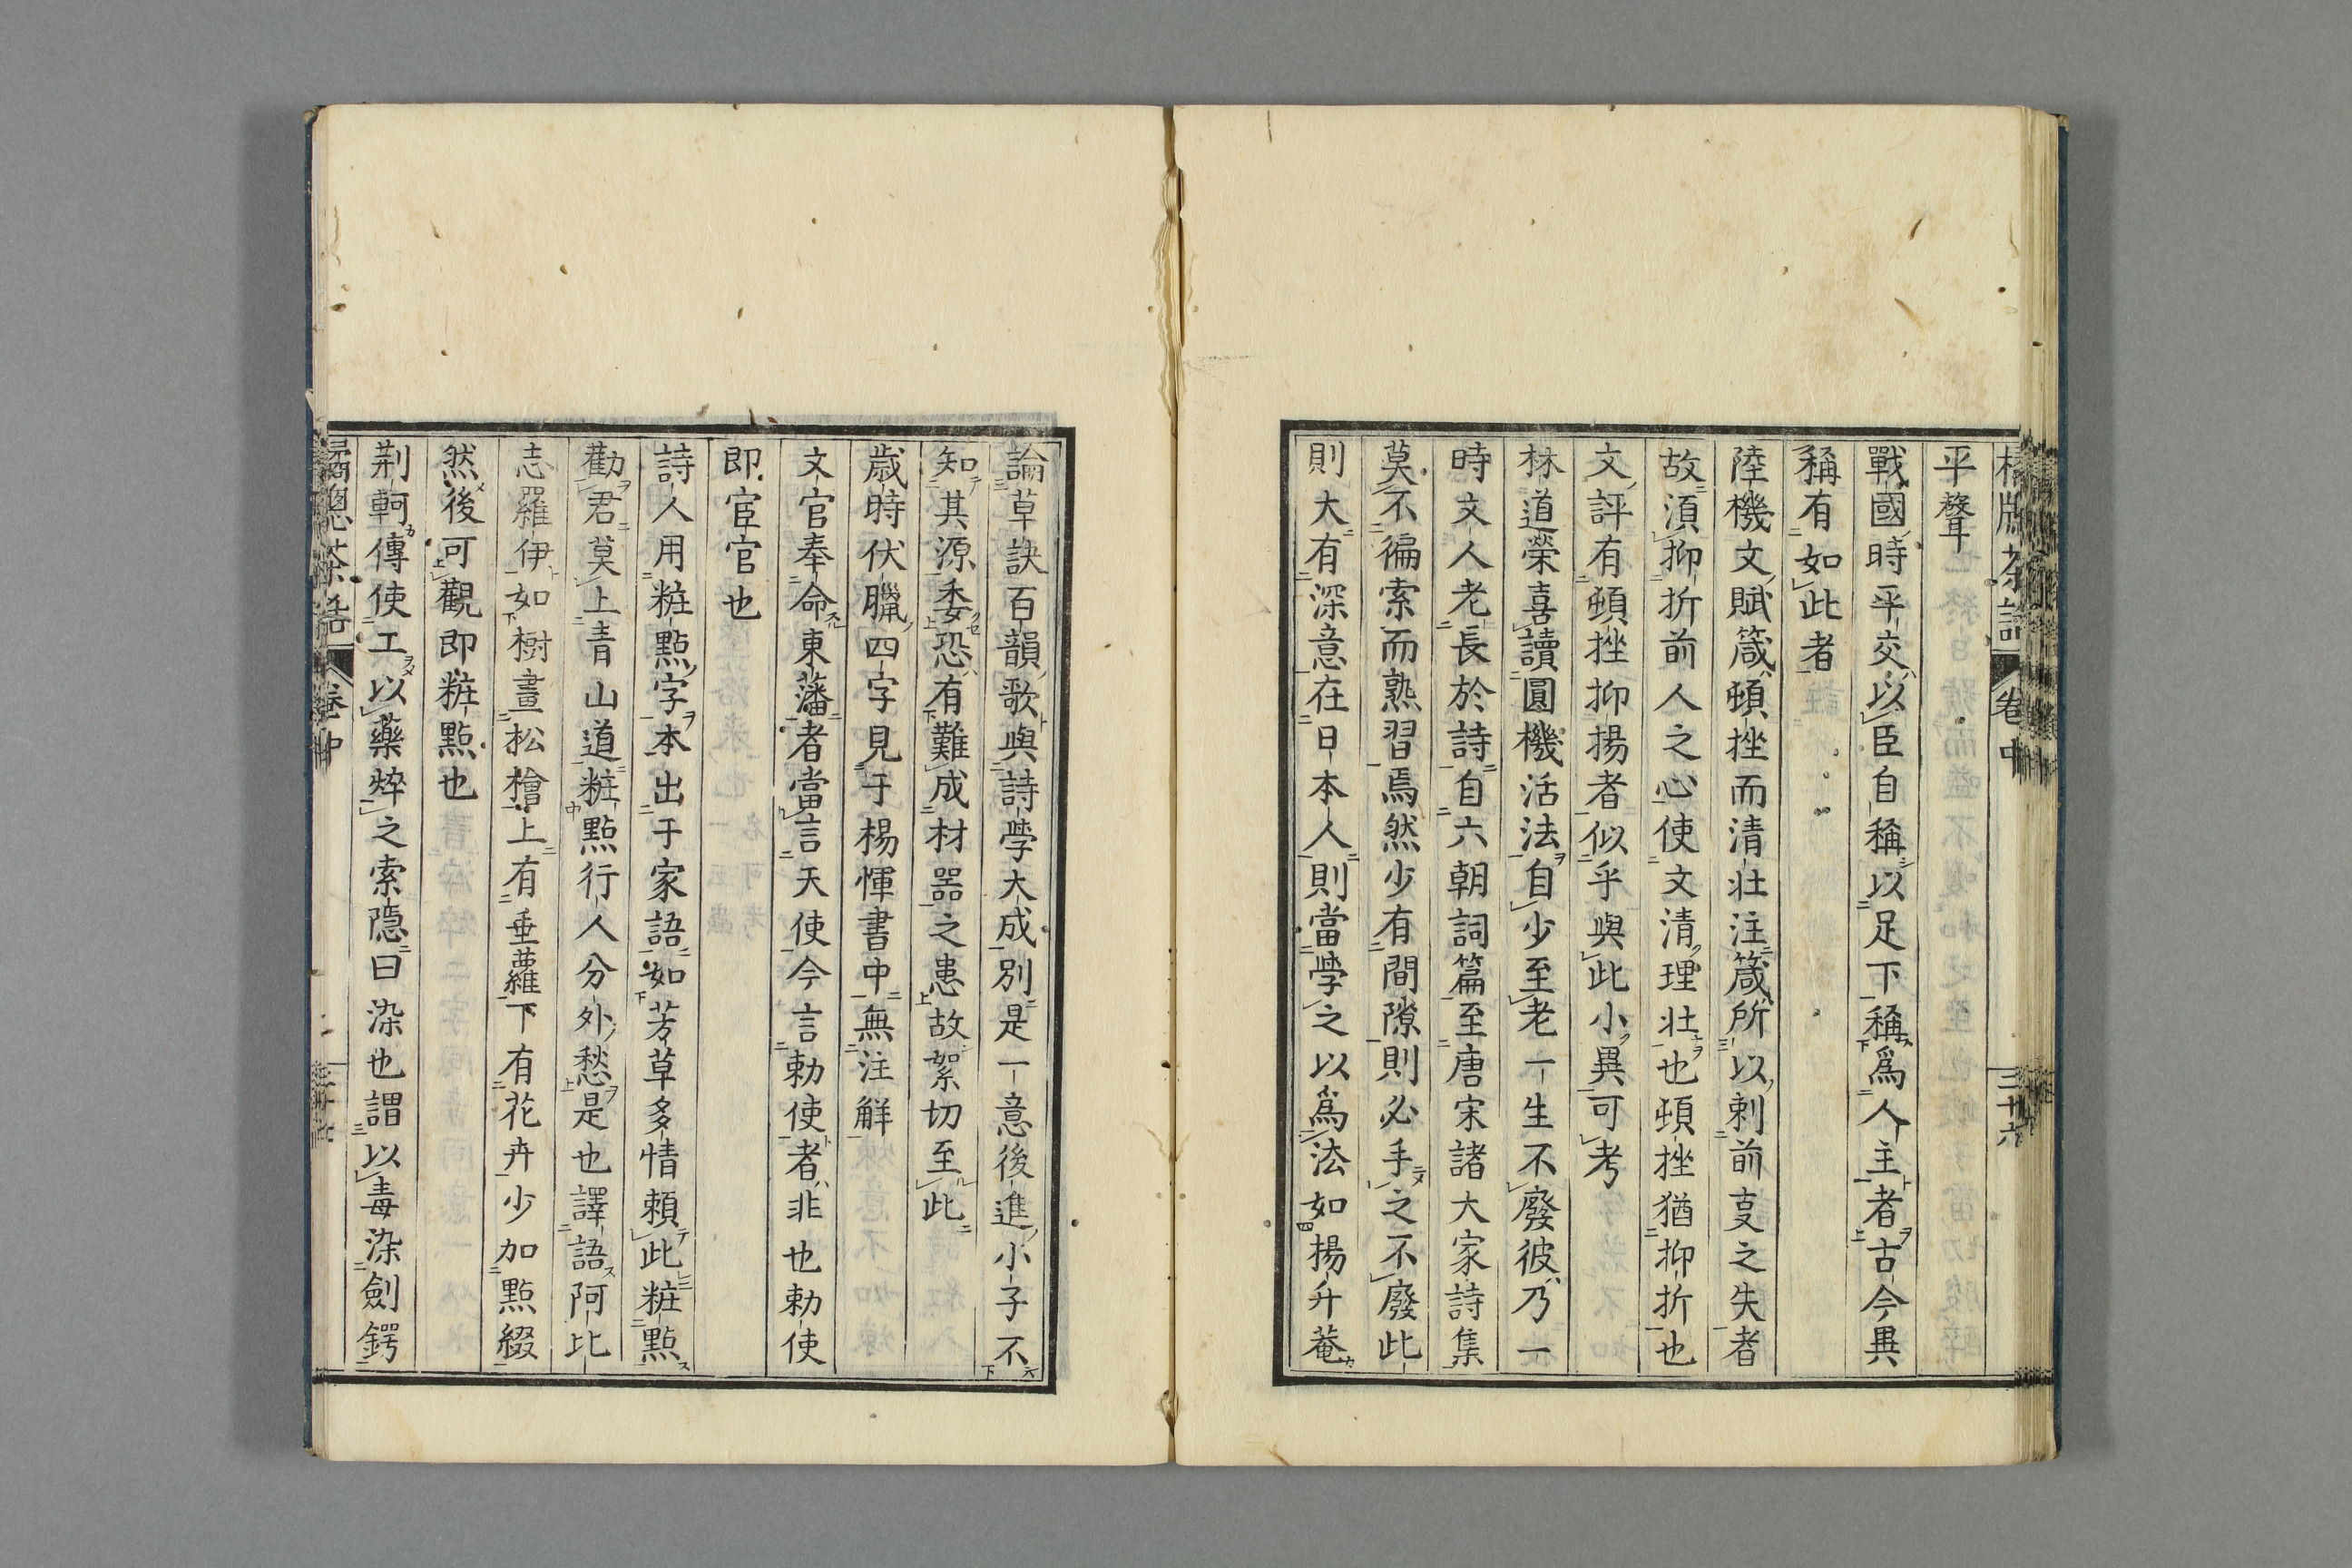 平聱
戰國時平交以臣自稱以足下稱爲人主者古今異
稱有如此者
陸機文賦箴頓挫而清壯注箴所以刺前叓之失者
故湏抑折前人之心使文清理壯也頓挫猶抑折也
文評有頓挫抑揚者似乎與此小異可考
林道榮喜讀圓機活法自少至老一生不廢彼乃一
時文人老長於詩自六朝詞篇至唐宋諸大家詩集
莫不徧索而熟習焉然少有間隙則必手之不廢此
則大有深意在日本人則當學之以爲法如揚升菴
論草訣百韻歌與詩學大成別是一意後進小子不
知其源委恐有難成材噐之患故絮切至此
歳時伏臘四字見于楊惲書中無注解
文官奉命東藩者當言天使今言勅使者非也勅使
即宦官也
詩人用粧點字本出于家語如芳草多情頼此粧點
勸君莫上青山道粧點行人分外愁是也譯語阿比
志羅伊如樹畫松檜上有垂蘿下有花卉少加點綴
然後可觀即粧點也
荆軻傳使工以藥焠之索隠曰染也謂以毒染劍鍔